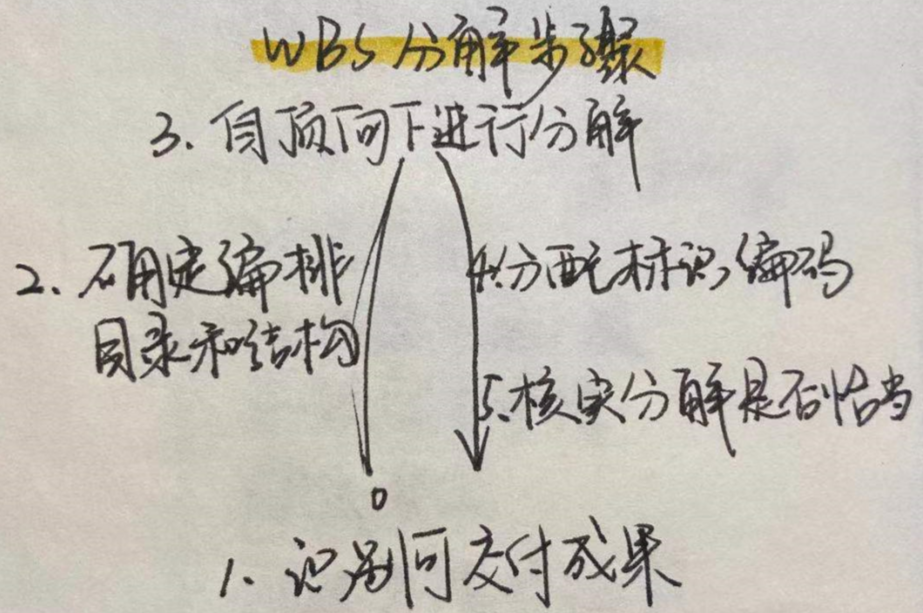 WBS分解步骤
3、自顶向下进行分解
2、确定编排
目录和结构
4、分配标识编码
5、核实分解是否恰当
1、识别可交付成果